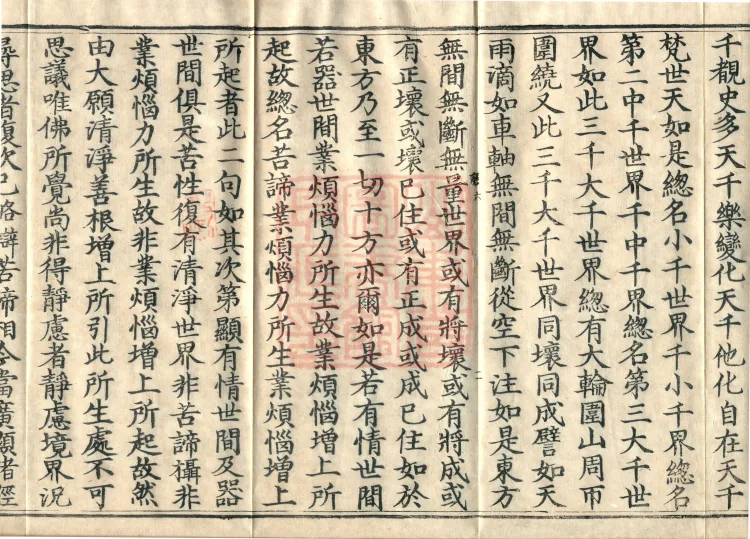 千覩史多天千樂變化天千他化自在天千
梵世天如是總名小千世界千小千界總名
第二中千世界千中千界總名第三大千世
界如此三千大千世界總有大輪圍山周帀
圍繞又此三千大千世界同壞同成譬如天
雨滴如車軸無間無斷從空下注如是東方
無間無斷無量世界或有將壞或有將成或
有正壞或壞已住或有正成或成已住如於
東方乃至一切十方亦爾如是若有情世間
若器世間業煩惱力所生故業煩惱增上所
起故總名苦諦業煩惱力所生業煩惱增上
所起者此二句如其次第顯有情世間及器
世間俱是苦性復有清淨世界非苦諦攝非
業煩惱力所生故非業煩惱增上所起故然
由大願清淨善根增上所引此所生處不可
思議唯佛所覺尚非得靜慮者靜慮境界況
尋思者復次已略辯苦諦相今當廣顯者經